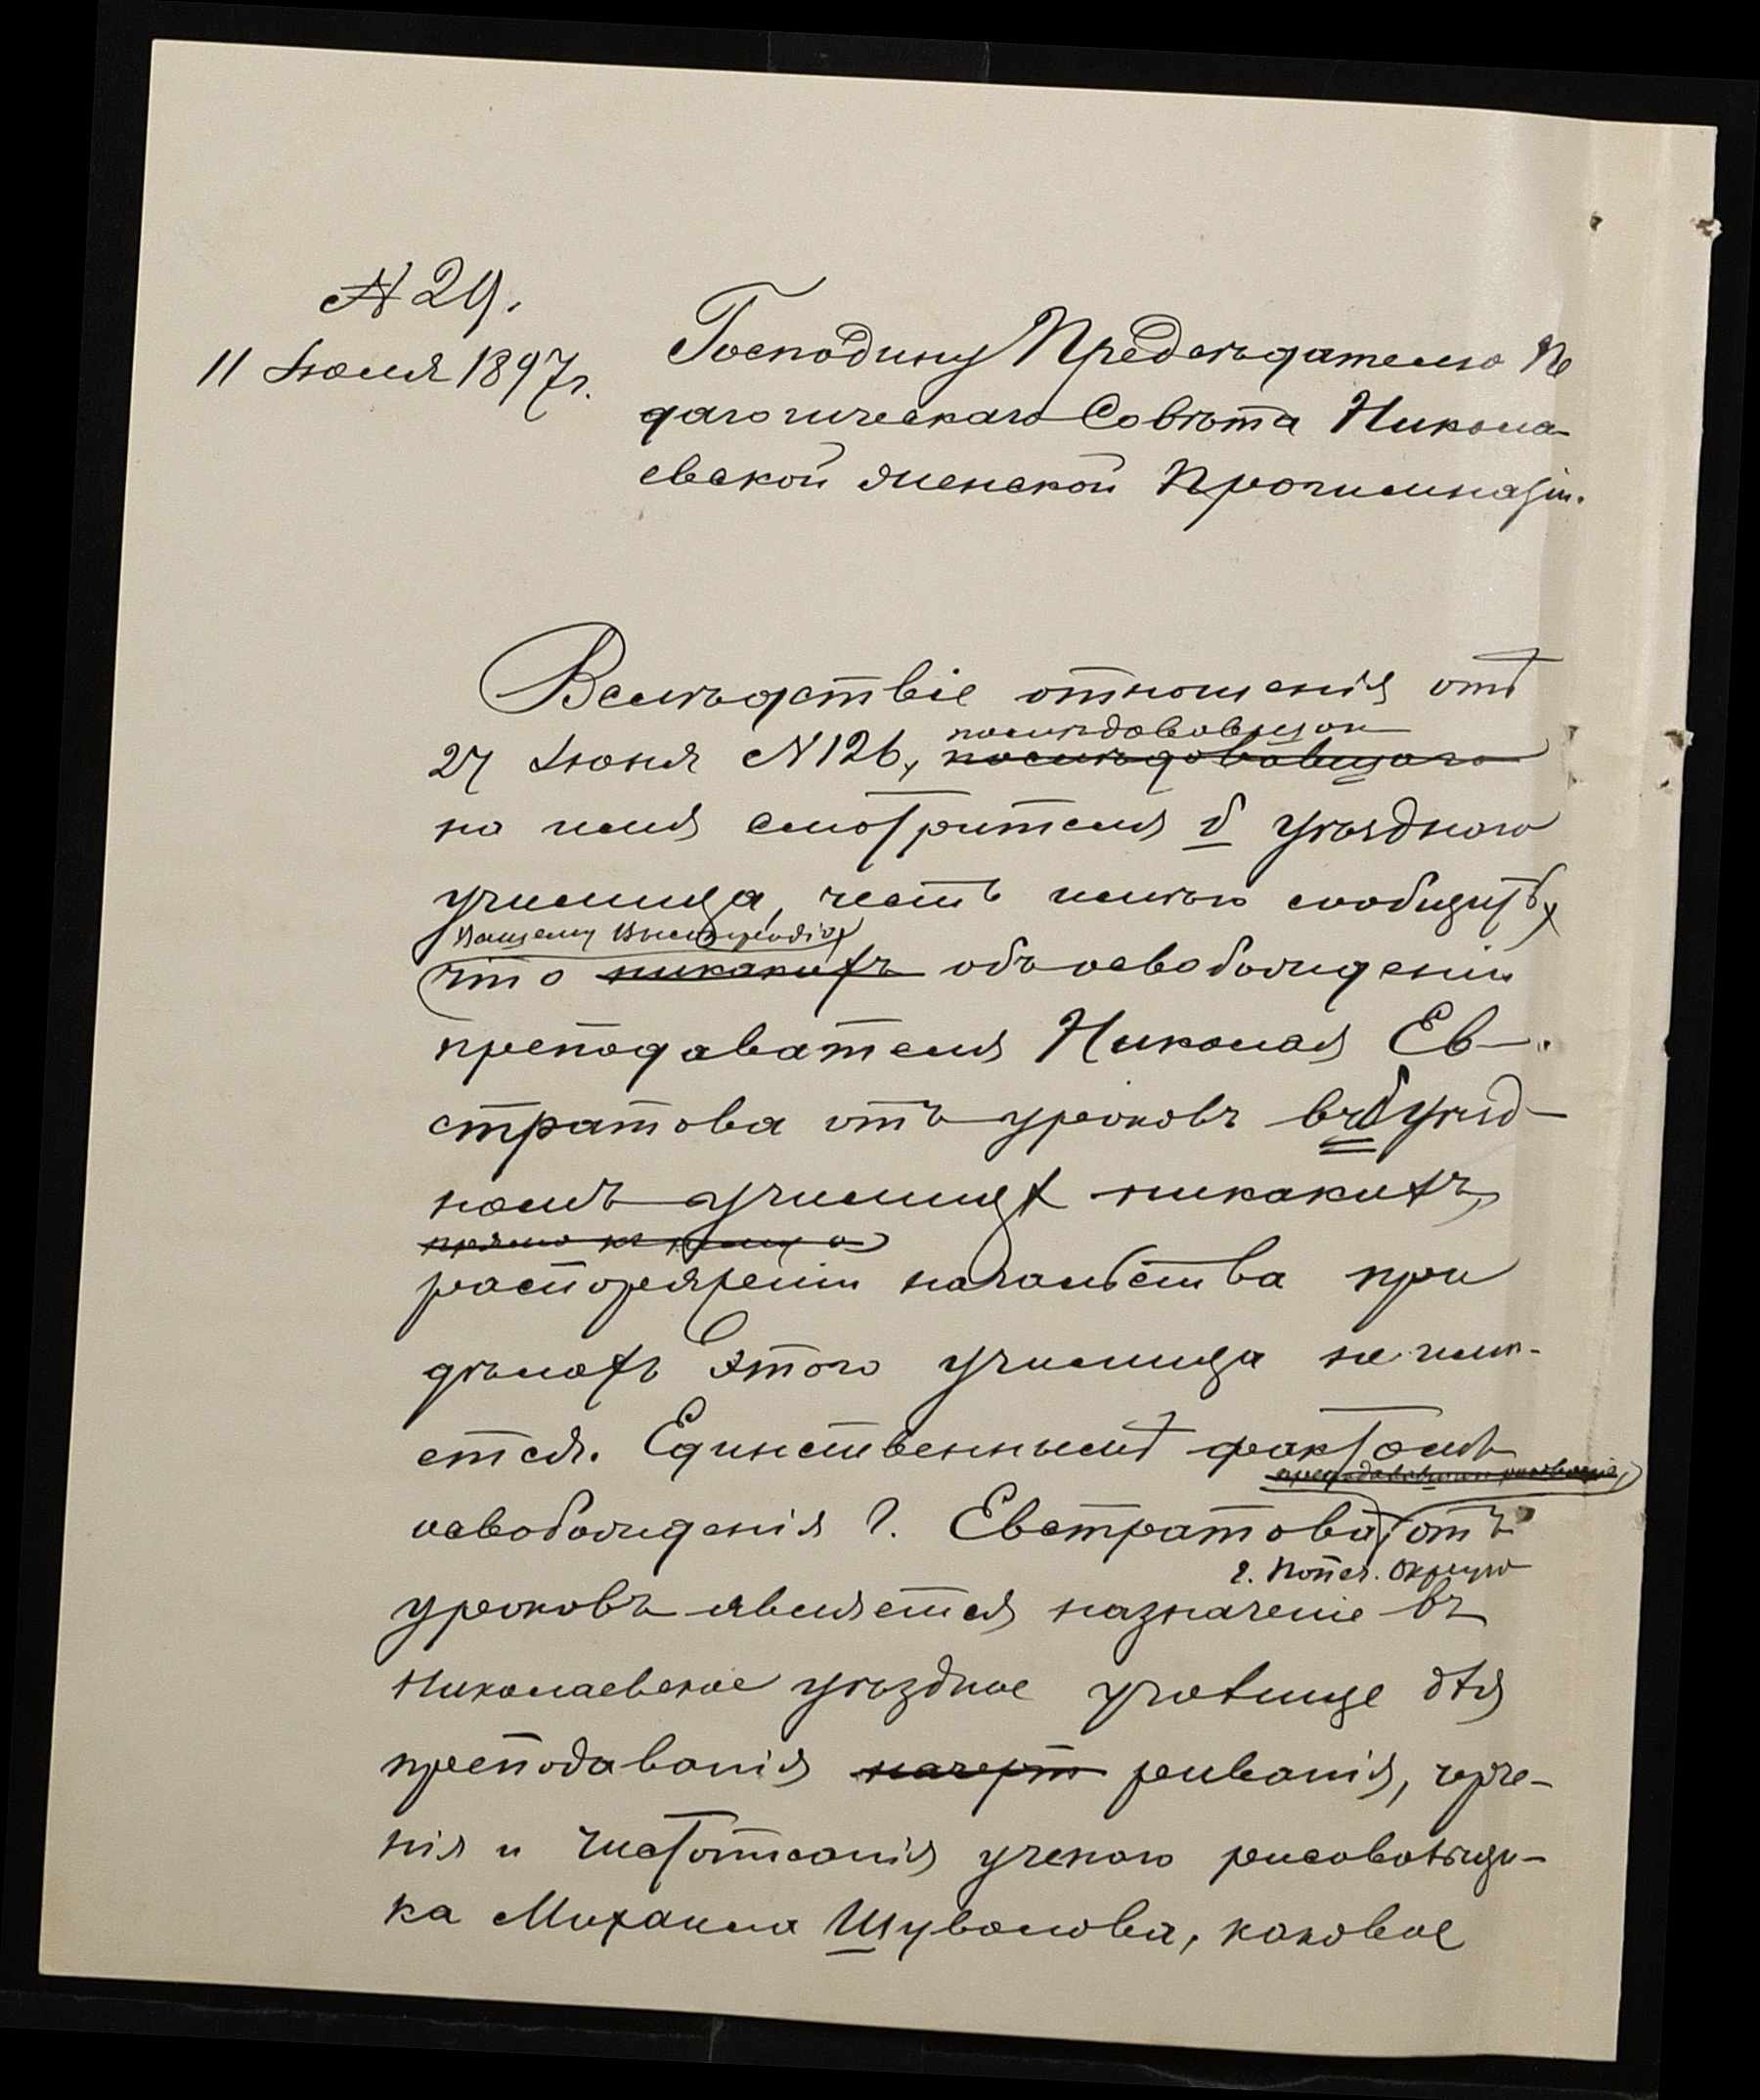 № 29.
11 Іюля 1897 г.
Господину Предсѣдателю Пе
дагогическаго Совѣта Никола-
евской женской Прогимназіи.
Вслѣдствіе отношенія отъ
послѣдовавшаго
27 Іюня № 126, послѣдовавшаго
на имя смотрителя б уѣзднаго
училища, честь имѣю сообщить
Вашему Высокородію
что никакихъ объ освобожденіи
преподавателя Николая Ев-
стратова отъ уроковъ въ б уѣзд-
номъ училищѣ никакихъ
распоряженій начальства при
дѣлахъ этого училища не имѣ-
ется. Единственнымъ фактомъ
освобожденія г. Евстратова отъ
г. Попеч. Округа
уроковъ является назначеніе въ
Николаевское уѣздное училище для
преподаванія начерт рисванія, черче-
нія и чистописанія ученого рисовальщи-
ка Михаила Шувалова, каковое